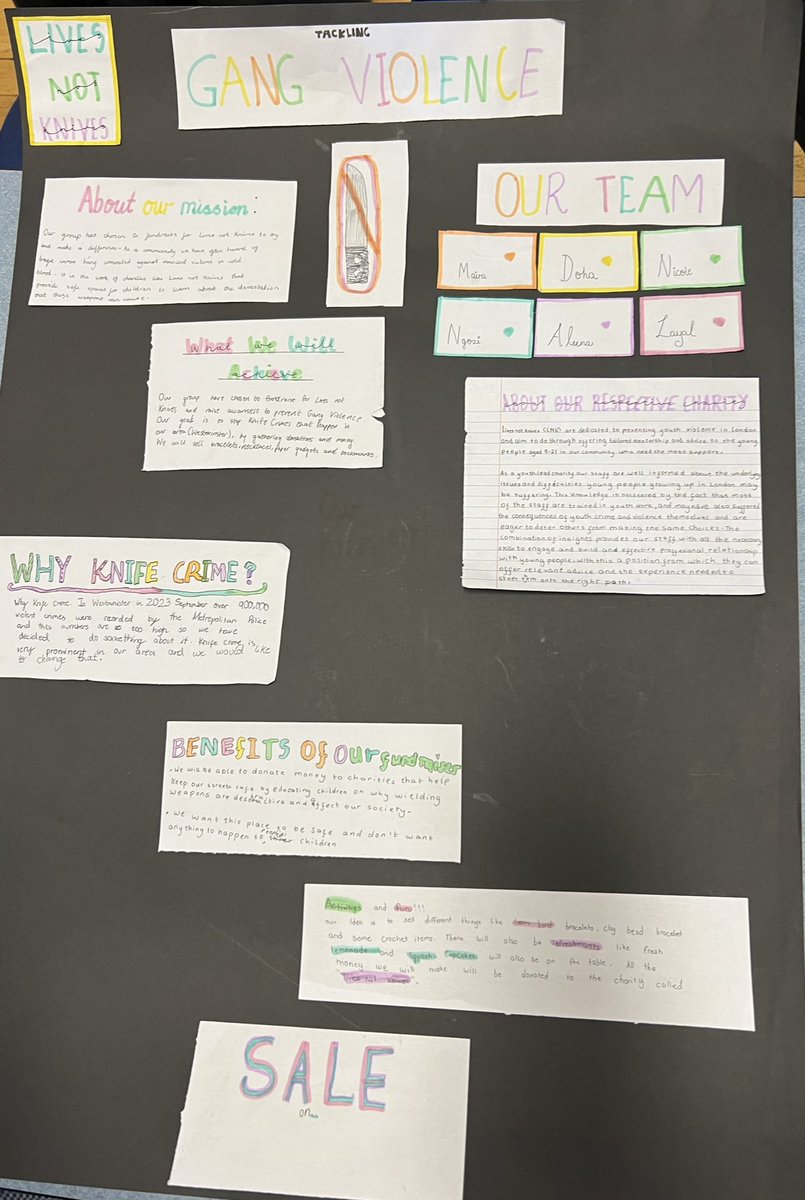 LIVES
NOT
KNIVES
TACKLING
GANG VIOLENCE
About our mission:
Our group has chosen to fundraise for Lives not Knives to try
and make a difference. As a community we have often heard of
tragic crimes being committed against innocent victims in cold
blood. It is the work of charities like Lives not Knives that
provide safe spaces for children to learn about the devastation
that these weapons can cause.
OUR TEAM
Maira
Doha
Nicole
Ngozi
Aleena
Layal
What We Will
Achieve
Our group have chosen to fundraise for Lives not
Knives and raise awarness to prevent Gang Violence
Our goal is to stop Knife Crimes that happen in
our area (Westminster), by gathering donations and money.
We will sell bracelets, necklaces, paper gadgets and bookmarks.
ABOUT OUR RESPECTIVE CHARITY
Lives not Knives (LNK) are dedicated to preventing youth violence in London
and aim to do through offering tailored mentorship and advice to the young
people aged 8-21 in our community who need the most support.
As a youth-lead charity our staff are well informed about the underlying
issues and difficulties young people growing up in London may
be suffering. This knowledge is by the fact that most
of the staff are trained in youth work, and may have also suffered
the consequences of youth crime and violence themselves and are
eager to deter others from making the same choices. The
combination of insights provides our staff with all the necessary
skills to engage and build and effective proffessional relationship
with young people, with this a position from which they can
offer relevant advice and the experience needed to
steer them onto the right path.
WHY KNIFE CRIME?
Why Knife crime. In Westminster in 2023 September over 900,000
violent crimes were recorded by the Metropolitan Police
and this numbers are too high so we have
decided to do something about it. Knife Crime is
very prominent in our area and we would like
to change that.
BENEFITS Of Our fundraiser
• We will be able to donate money to charities that help
keep our streets safe by educating children on why wielding
weapons are destructive and affect our society.
• We want this place to be safe and don't want
anything to happen to children
Activities and fun!!!
our idea is to sell different things like loom band bracelets, clay bead bracelet
and some crochet items. There will also be refreshments like fresh
lemonade and squash. Cupcakes will also be on the table. All the
money we will make will be donated to the charity called
"lives not knives".
SALE
on...